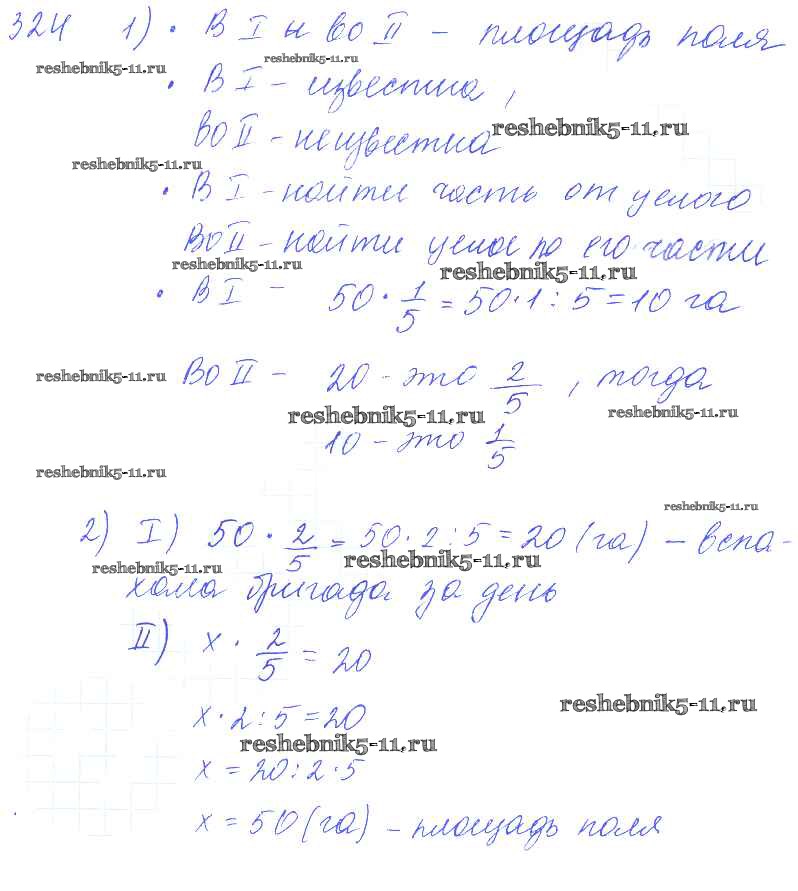 324 1) • В I и во II – площадь поля
reshebnik5-11.ru reshebnik5-11.ru
• В I – известна,
во II – неизвестна reshebnik5-11.ru
reshebnik5-11.ru
• В I – найти часть от целого
Во II – найти целое по его части
reshebnik5-11.ru reshebnik5-11.ru
• В I – 50 · 1/5 = 50 · 1 : 5 = 10 га
reshebnik5-11.ru Во II – 20 – это 2/5, тогда
reshebnik5-11.ru reshebnik5-11.ru
10 – это 1/5
reshebnik5-11.ru
reshebnik5-11.ru
2) I) 50 · 2/5 = 50 · 2 : 5 = 20 (га) – вспа-
reshebnik5-11.ru reshebnik5-11.ru
хала бригада за день
II) x · 2/5 = 20
reshebnik5-11.ru
x · 2 : 5 = 20
reshebnik5-11.ru
x = 20 : 2 · 5
x = 50 (га) – площадь поля